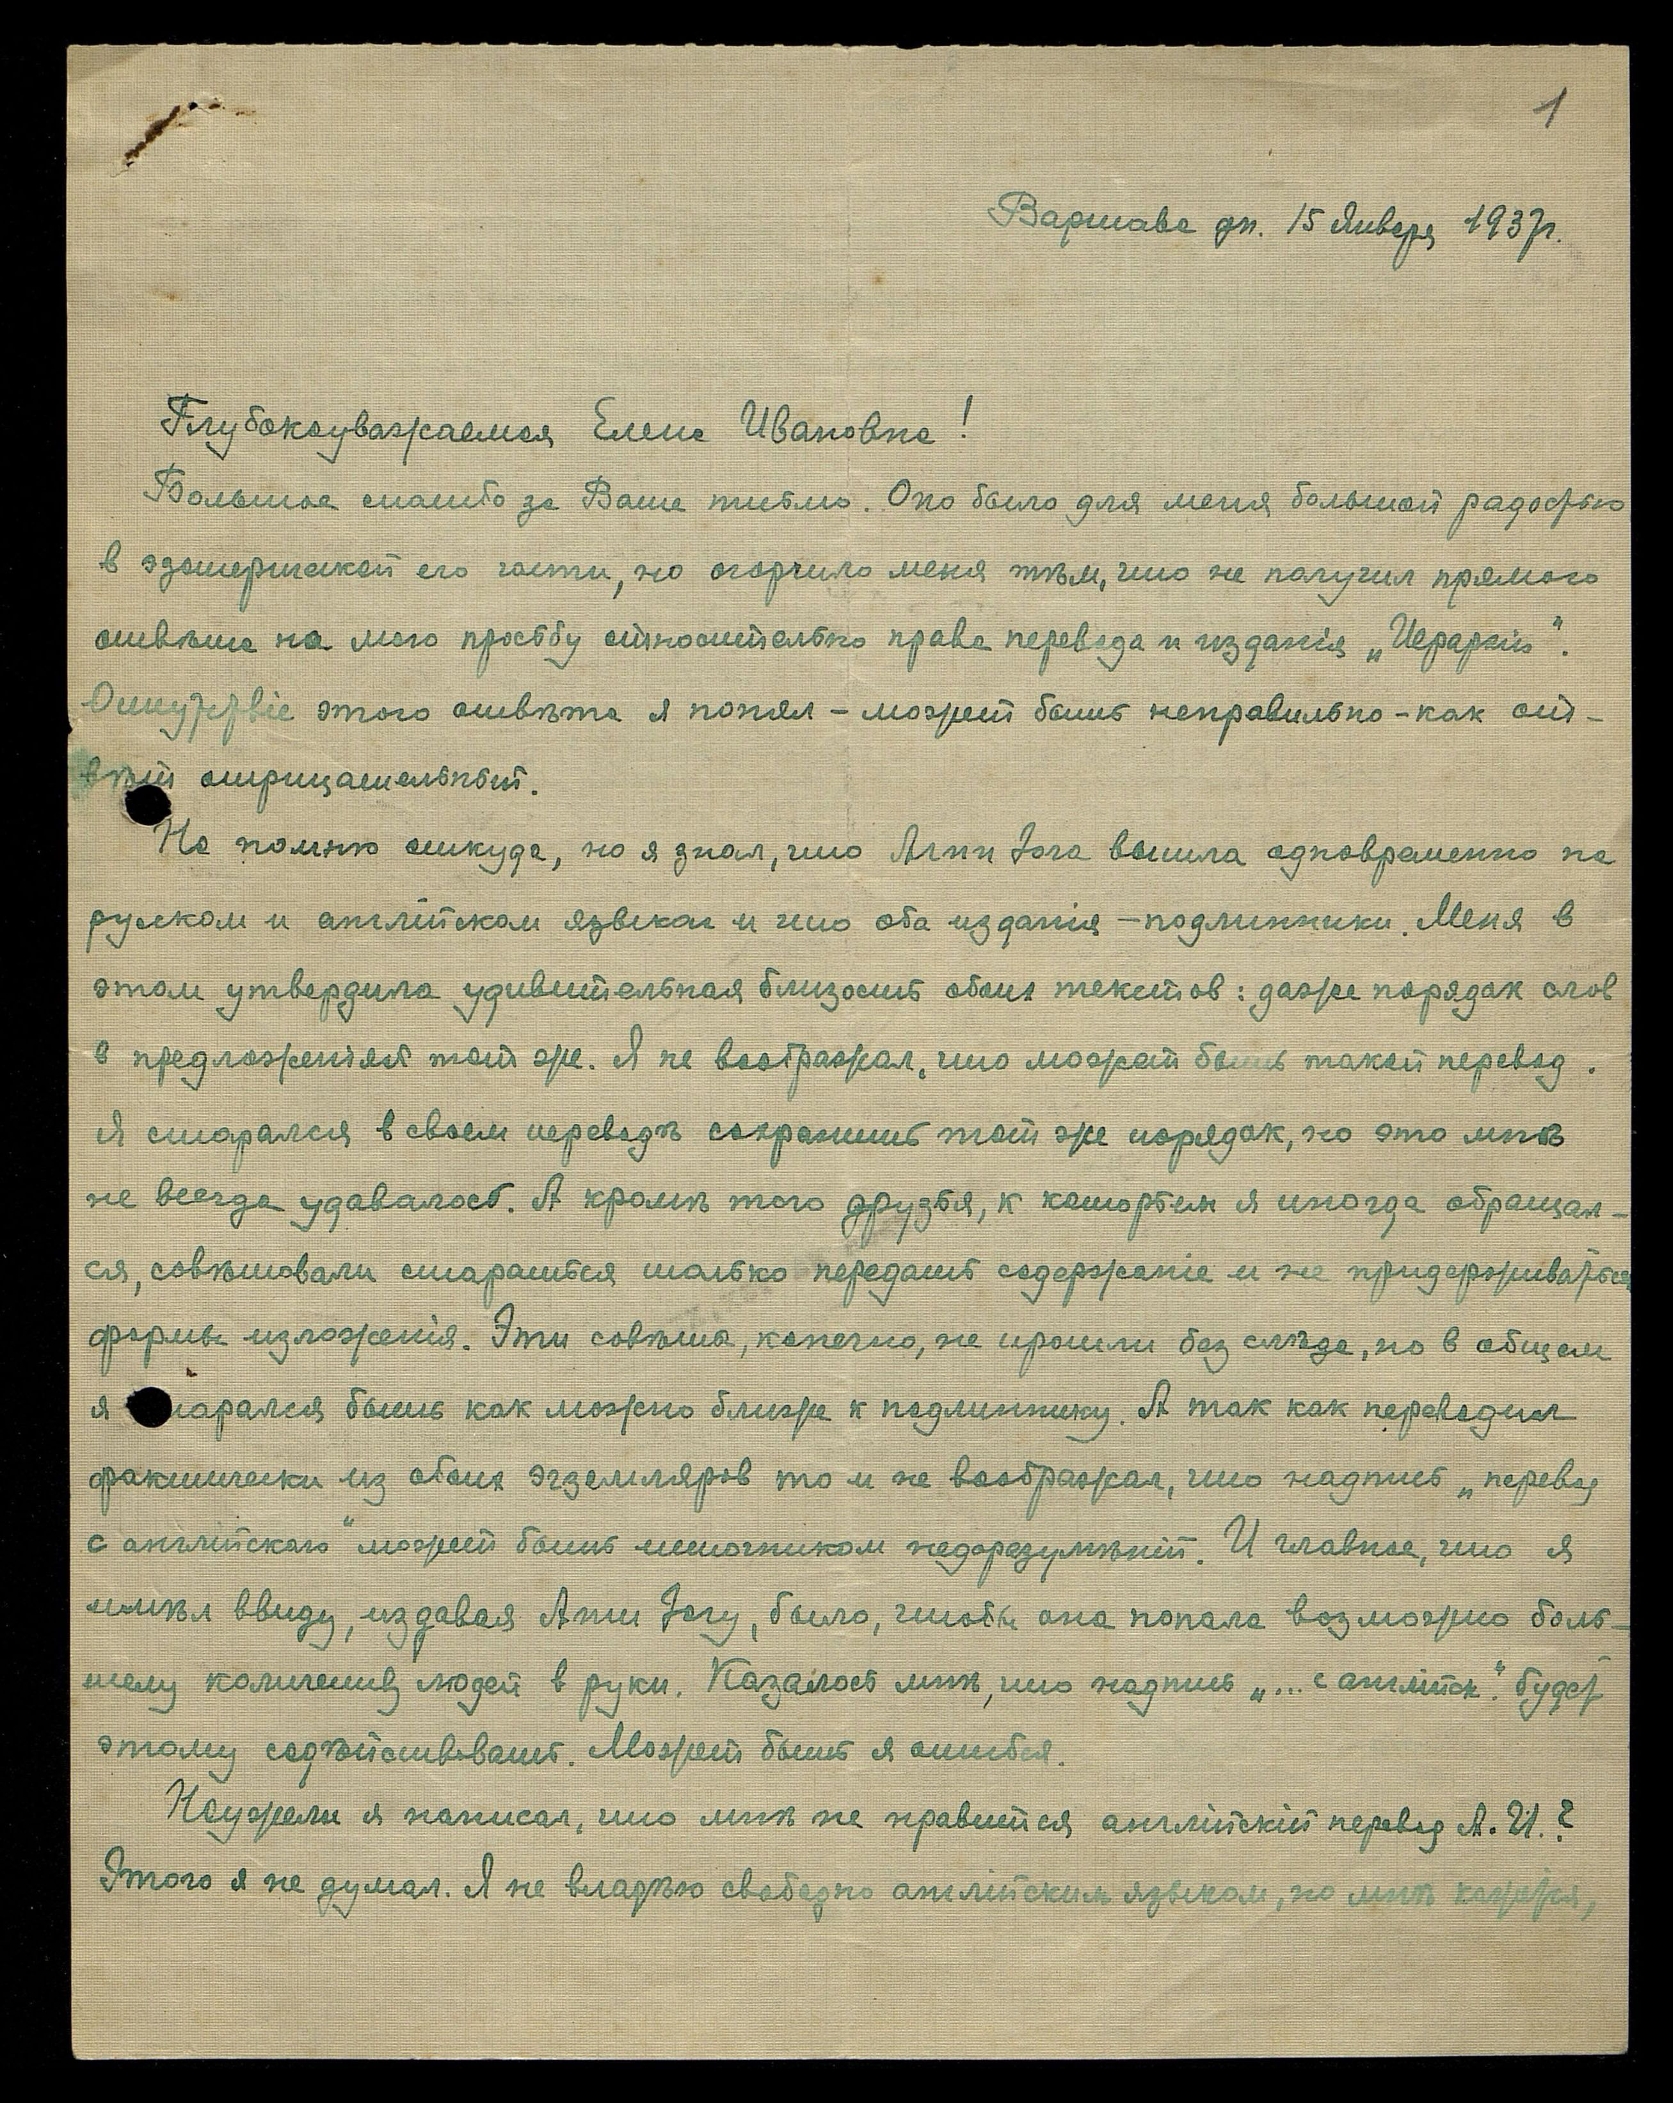 1
Варшава дн. 15 Января 1937г.
Глубокоуважаемая Елена Ивановна!
Большое спасибо за Ваше письмо. Оно было для меня большой радостью
в эзотерической его части, но огорчило меня тѣм, что не получил прямого
отвѣта на мою просьбу относительно права перевода и изданія „Иерархіи".
Отсутствіе этого отвѣта я понял – может быть неправильно – как от-
вѣт отрицательный.
Не помню откуда, но я знал, что Агни Јога вышла одновременно на
русском и англійском языках и что оба изданія – подлинники. Меня в
этом утвердила удивительная близость обоих текстов: даже порядок слов
в предложеніях тот же. Я не воображал, что может быть такой перевод.
Я старался в своем переводѣ сохранить тот же порядок, но это мнѣ
не всегда удавалось. А кромѣ того друзья, к которым я иногда обращал-
ся, совѣтовали стараться только передать содержаніе и не придерживаться
формы изложенія. Эти совѣты, конечно, не прошли без слѣда, но в общем
я старался быть как можно ближе к подлиннику. А так как переводил
фактически из обоих эгземпляров то и не воображал, что надпись „перевод
с англійскаго" может быть источником недоразумѣній. И главное, что я
имѣл ввиду, издавая Агни Јогу, было, чтобы она попала возможно боль-
шему количеству людей в руки. Казалось мнѣ, что надпись „... с англійск." будет
этому содѣйствовать. Может быть я ошибся.
Неужели я написал, что мнѣ не нравится англійскій перевод А. И.?
Этого я не думал. Я не владѣю свободно англійским языком, но мнѣ кажется,